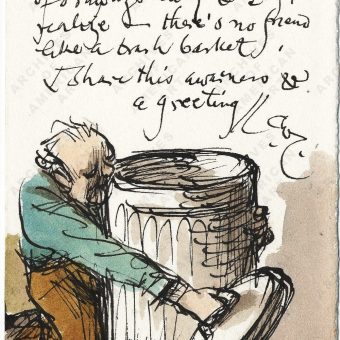 of drawings
realize - there's no friend
like a trash basket.
I share this awareness &
a greeting